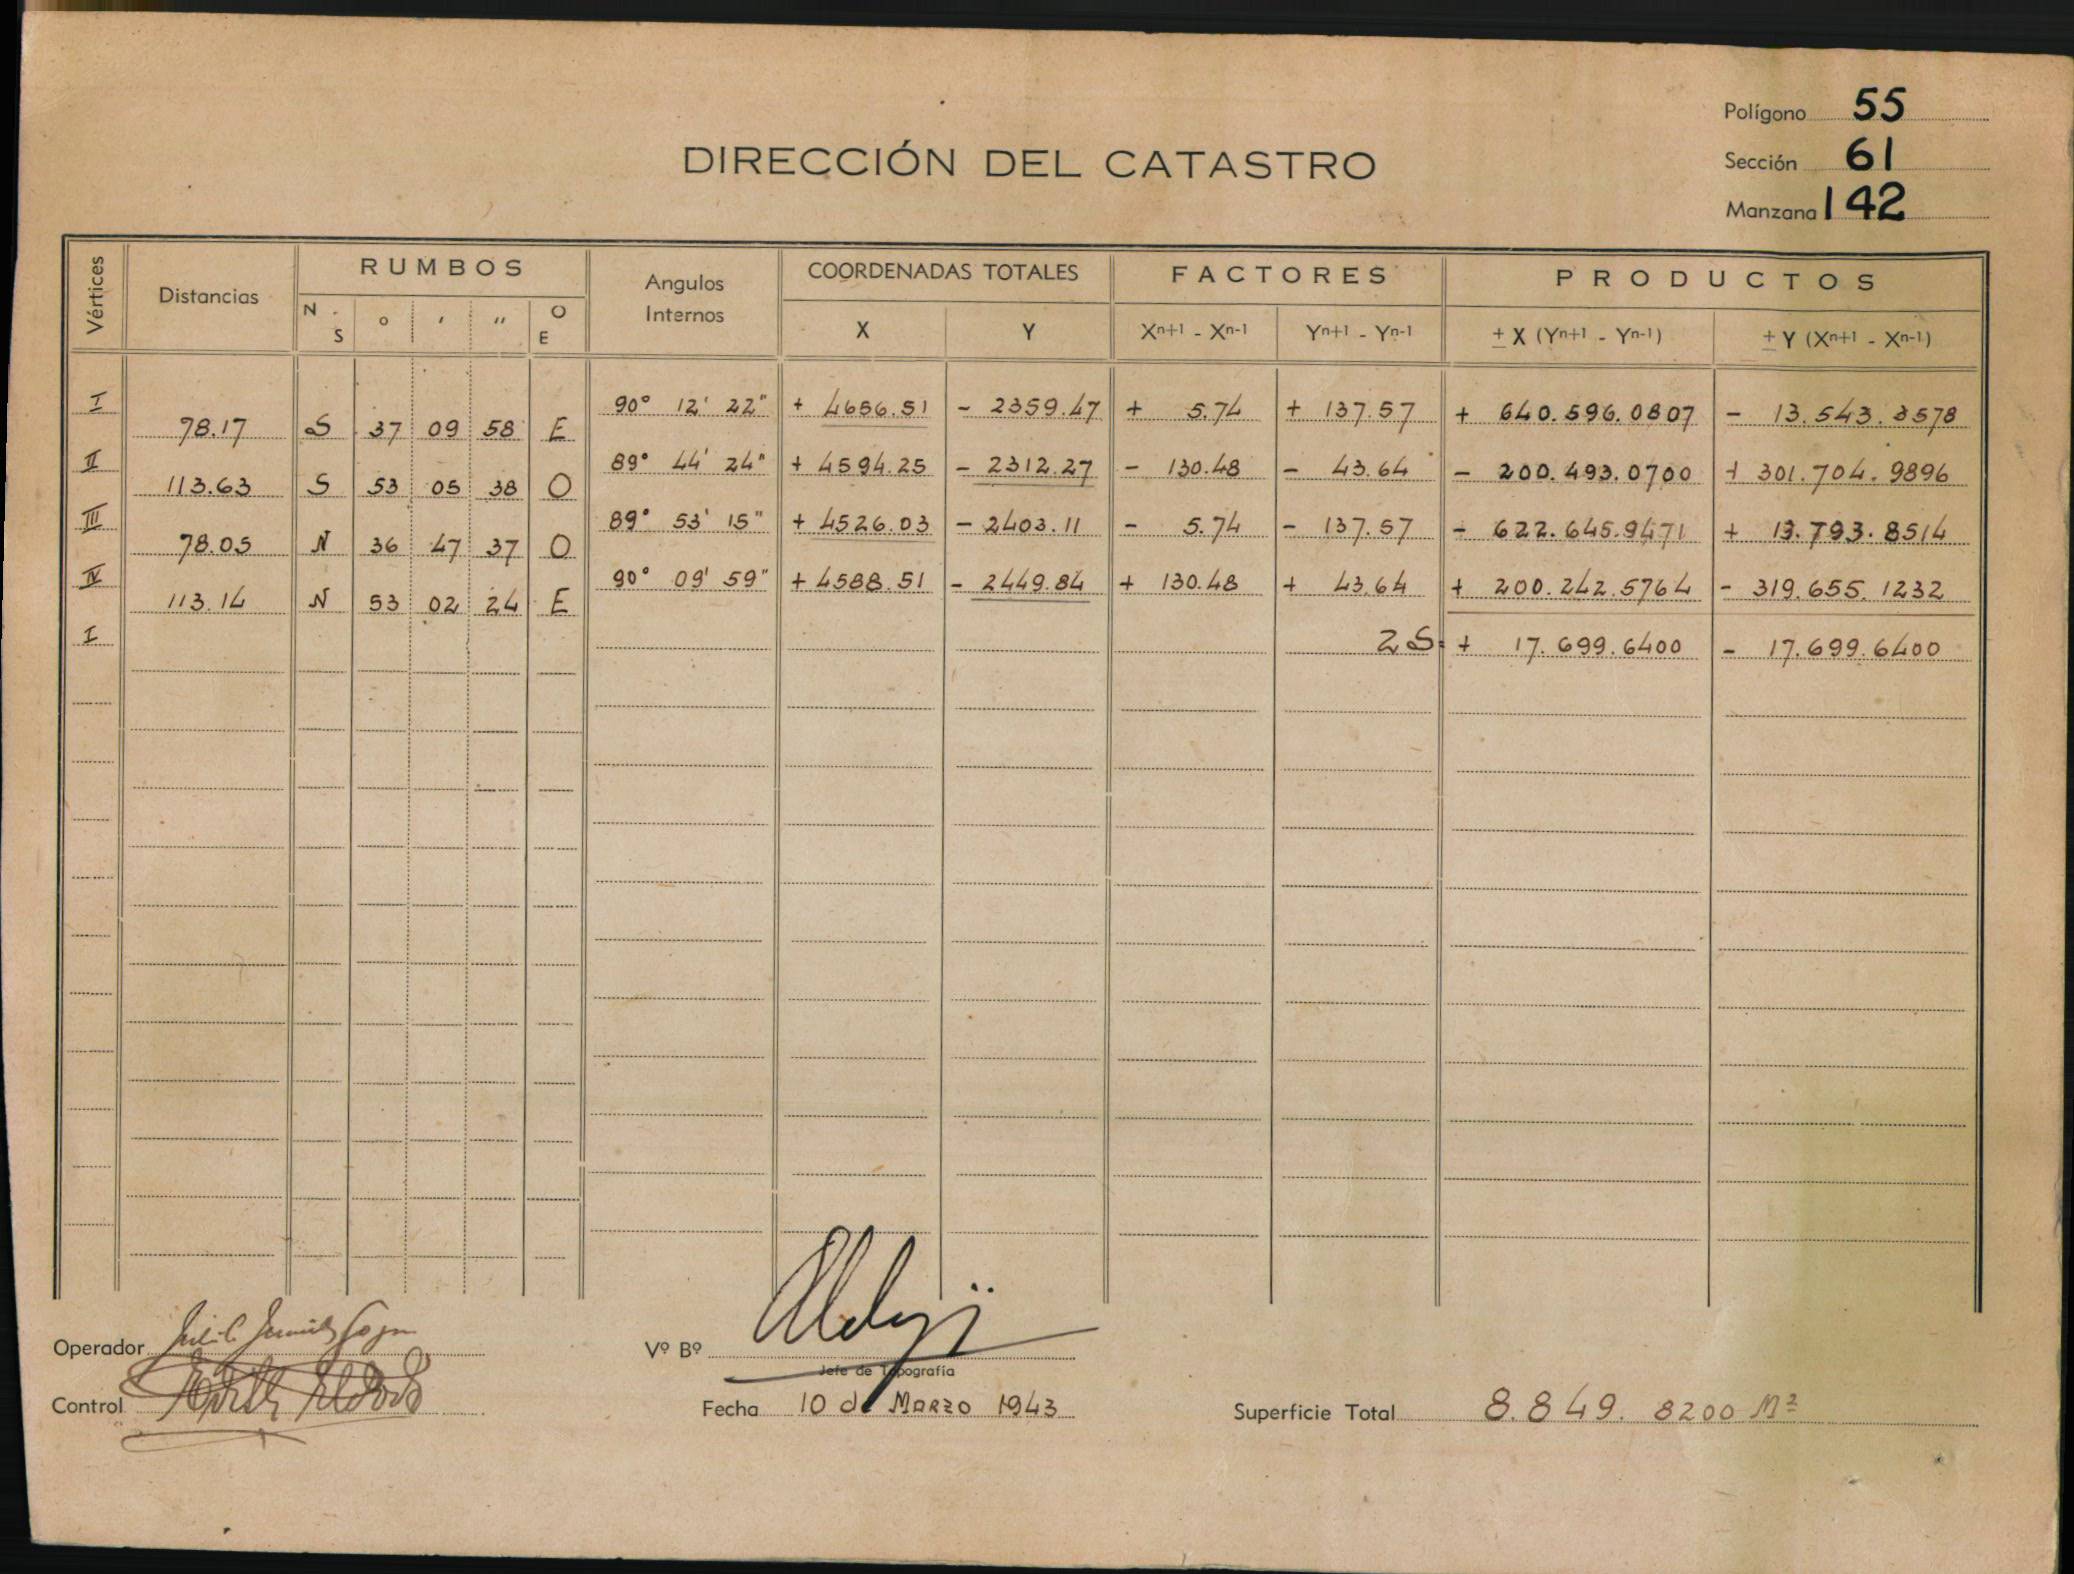 Polígono 55
DIRECCIÓN DEL CATASTRO
Sección 61
Manzana 142
Vértices Distancias RUMBOS Angulos Internos COORDENADAS TOTALES FACTORES PRODUCTOS
N - S ° ' " O E X Y Xn+1 - Xn-1 Yn+1 - Yn-1 ± X (Yn+1 - Yn-1) ± Y (Xn+1 - Xn-1)
I 90° 12' 22" + 4656.51 - 2359.47 + 5.74 + 137.57 + 640.596.0807 - 13.543.3578
78.17 S 37 09 58 E
II 89° 44' 24" + 4594.25 - 2312.27 - 130.48 - 43.64 - 200.493.0700 + 301.704.9896
113.63 S 53 05 38 O
III 89° 53' 15" + 4526.03 - 2403.11 - 5.74 - 137.57 - 622.645.9471 + 13.793.8514
78.05 N 36 47 37 O
IV 90° 09' 59" + 4588.51 - 2449.84 + 130.48 + 43.64 + 200.242.5764 - 319.655.1232
113.14 N 53 02 24 E
I 2S= + 17.699.6400 - 17.699.6400
Operador
Vº Bº
Jefe de Topografía
Control
Fecha 10 de MARZO 1943
Superficie Total 8.849.8200 M2